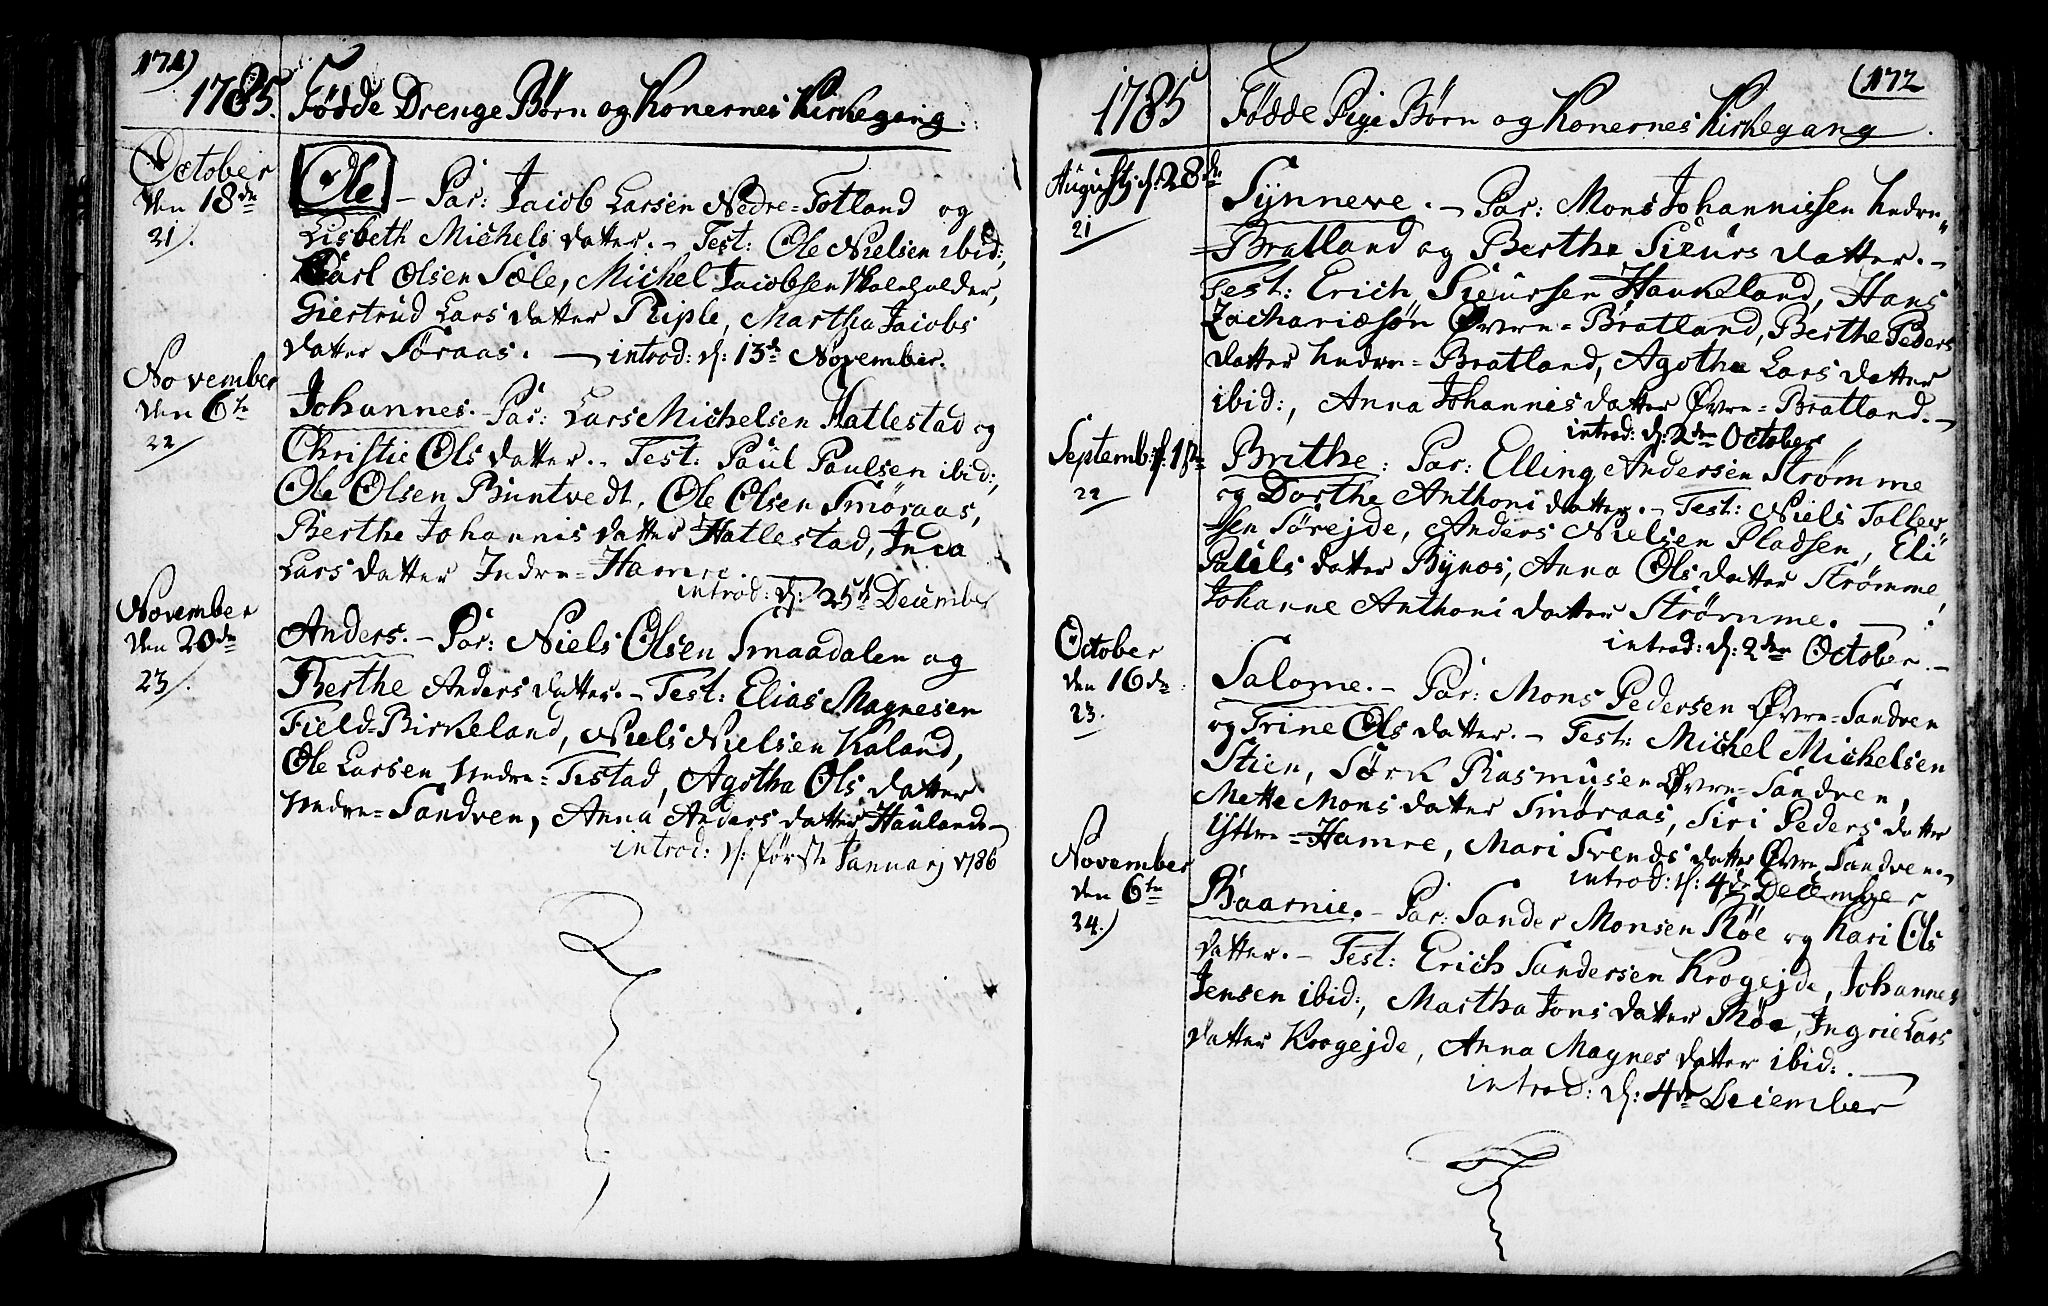 171)
1785. Fødde Drenge Børn og Konernes Kirkegang.
October
den 18de
21).
Ole – Par: Jacob Larsen Nedre=Totland og
Lisbeth Michels datter. – Test: Ole Nielsen ibid:,
Carl Olsen Sæle, Michel Jacobsen Skoleholder,
Giertrud Lars datter Riple, Martha Jacobs
datter Søraas. – introd: d: 13de November.
November
den 6te
22/
Johannes. – Par: Lars Michelsen Hatlestad og
Christie Ols datter. – Test: Paul Paulsen ibid:,
Ole Olsen Buntvedt, Ole Olsen Smøraas,
Berthe Johannis datter Hatlestad, Inda
Lars datter Indre=Hamre.
introd: d: 25de December
November
den 20de
23/.
Anders. – Par: Niels Olsen Smaadalen og
Berthe Anders datter. – Test: Elias Magnesen
Field=Birkeland, Niels Nielsen Kaland,
Ole Larsen Nedre=Tistad, Agotha Ols datter
Nedre=Sandven, Anna Anders datter Hauland. –
introd: d: første Januarj 1786
(172
1785 Fødde Pige Børn og Konernes Kirkegang.
Augustj d: 28de
21
Synneve. – Par: Mons Johannissen Nedre=
Bratland og Berthe Siurs datter. –
Test: Erich Siursen Haukeland, Hans
Zachariæsøn Øvre=Bratland, Berthe Peders
datter Nedre=Bratland, Agotha Lars datter
ibid:, Anna Johannis datter Øvre=Bratland. –
introd: d: 2den October
Septemb: d: 18de
22
Brithe: Par: Elling Andersen Strømme
og Dorthe Anthoni datter. – Test: Niels Toller
sen Sørejde, Anders Nielsen Pladsen, Eli
Pauls datter Bynes, Anna Ols datter Strømme,
Johanne Anthoni datter Strømme. –
introd: d: 2den October. –
October
den 16de
23.
Salome. – Par: Mons Pedersen Øvre=Sandven
og Trine Ols datter. – Test: Michel Michelsen
Stien, Sørk Rasmusen Øvre=Sandven,
Mette Mons datter Smøraas, Siri Peders datter
Ystre=Hamre, Mari Svends datter Øvre Sandven. –
introd: d: 4de December
November
den 6te
24.)
Baarnie. – Par: Sander Monsen Røe og Kari Ols
datter. – Test: Erich Sandersen Krogejde, Johannes
Jensen ibid:, Martha Jons datter Røe, Ingrie Lars
datter Krogejde, Anna Magnes datter ibid:. –
introd: d: 4de December